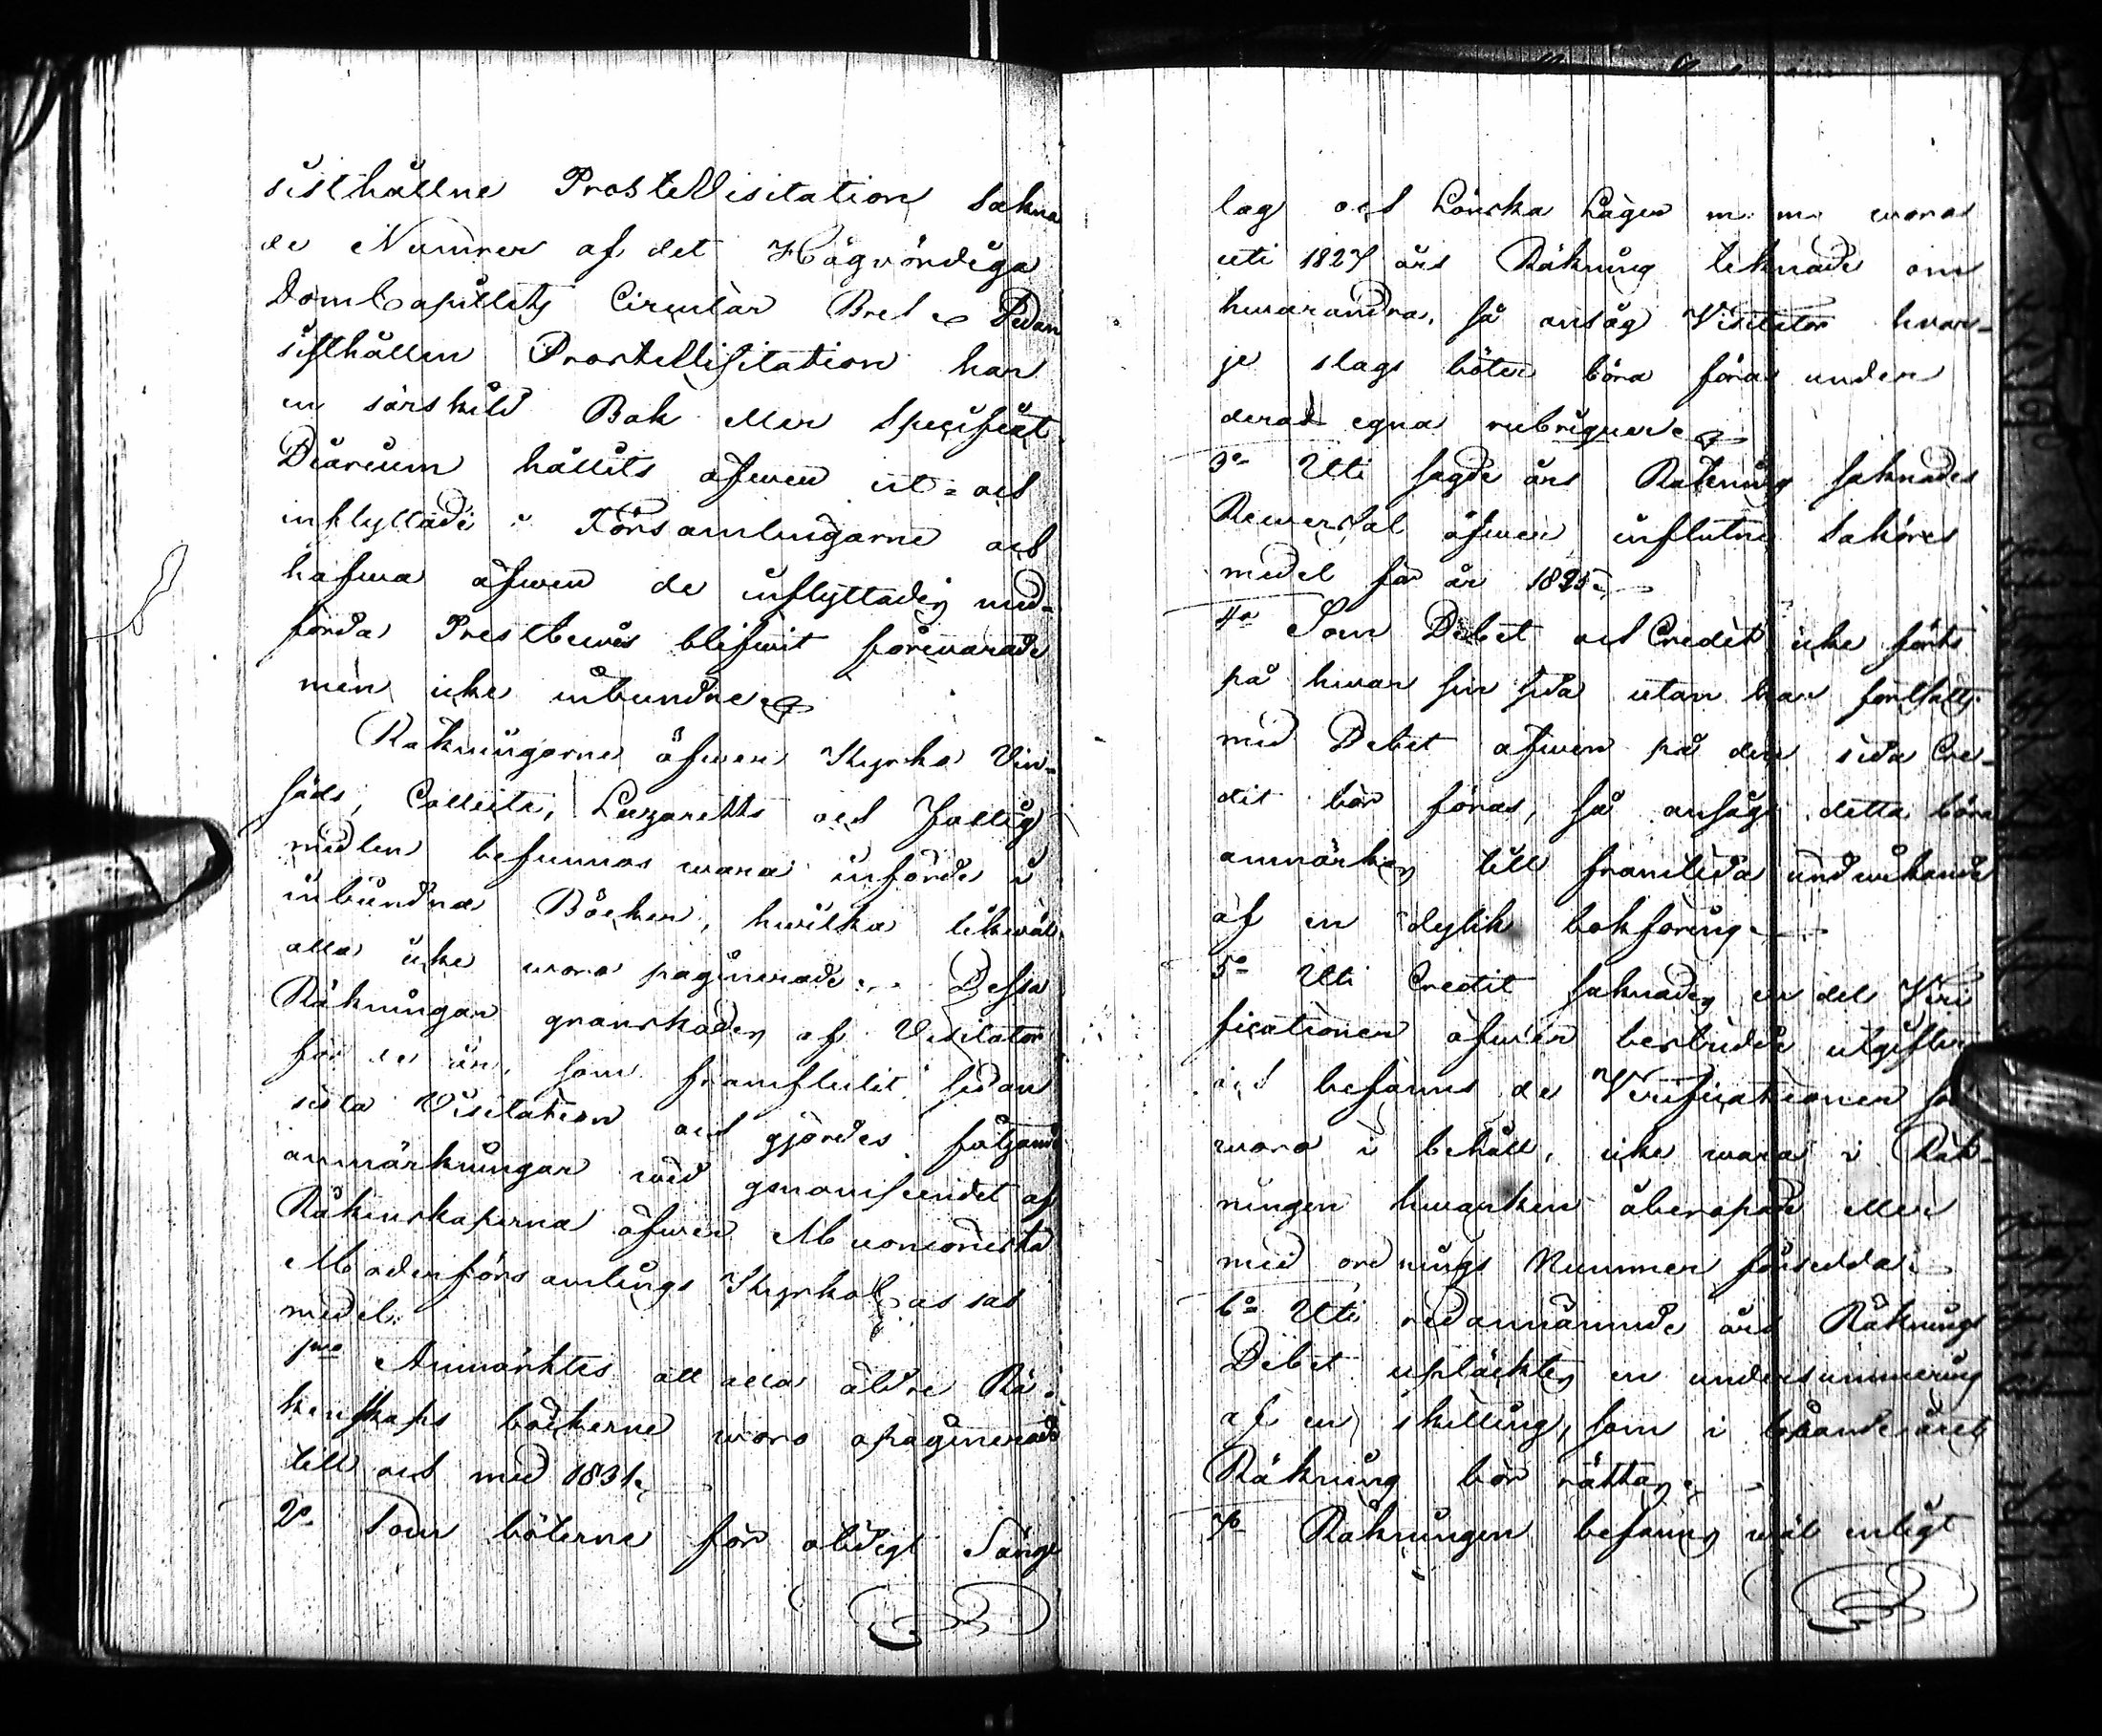 sisthållne ProsteVisitation sakna
de Numrer af det Högvördiga
DomCapitlets Circulär Bref. Sedan
sisthållen ProsteVisitation har
en särskild Bok eller Specifikt
Diarium hållits öfwer ut- och
inflyttade i Församlingarne och
hafwa äfwen de inflyttades med-
förda Prestbewis blifwit förwarade
men icke inbundne.
Räkningarne öfwer Kyrko Vin-
säds, Collecte, Lazaretts och Fattig
medlen befunnos wara införde i
inbundna Böcker, hwilka likwäl
alla icke woro paginerade. Dessa
Räkningar granskades af Visitator
för de år, som framflutit sedan
sista Visitation och gjordes följande
anmärkningar wid genomseendet af
Räkenskaperna öfwer Muonioniska
Moderförsamlings KyrkoCassas
medel.
1mo Anmärktes att alla äldre Rä-
kenskaps böckerne woro opaginerade
till och med 1831.
2o Som böterne för otidigt Sänge
lag och Lönska Läger m. m. woro
uti 1827 års Räkning teknade om
hwarandra, så ansåg Visitator hwar-
je slags böter böra föras under
deras egna rubriquer.
3o Uti sagde års Räkning saknades
Reversal öfwer influtne Sakören
medel för år 1825.
4o Som Debet och Credit icke förts
på hwar sin sida utan har fortsatts
med Debet äfwen på den sida Cre-
dit bör föras, så ansågs detta böra
anmärkas till framtida undwikande
af en dylik bokföring.
5o Uti Credit saknades en del Veri
ficationer öfwer bestridde utgifter
och befanns de Verificationer som
woro i behåll, icke wara i Räk-
ningen hwarken åberopade eller
med ordnings Nummer försedda.
6o Uti redannämnde års Räknings
Debet uptäcktes en undersummering
af en skilling, som i löpande årets
Räkning bör rättas.
7o Räkningen befanns wäl enligt